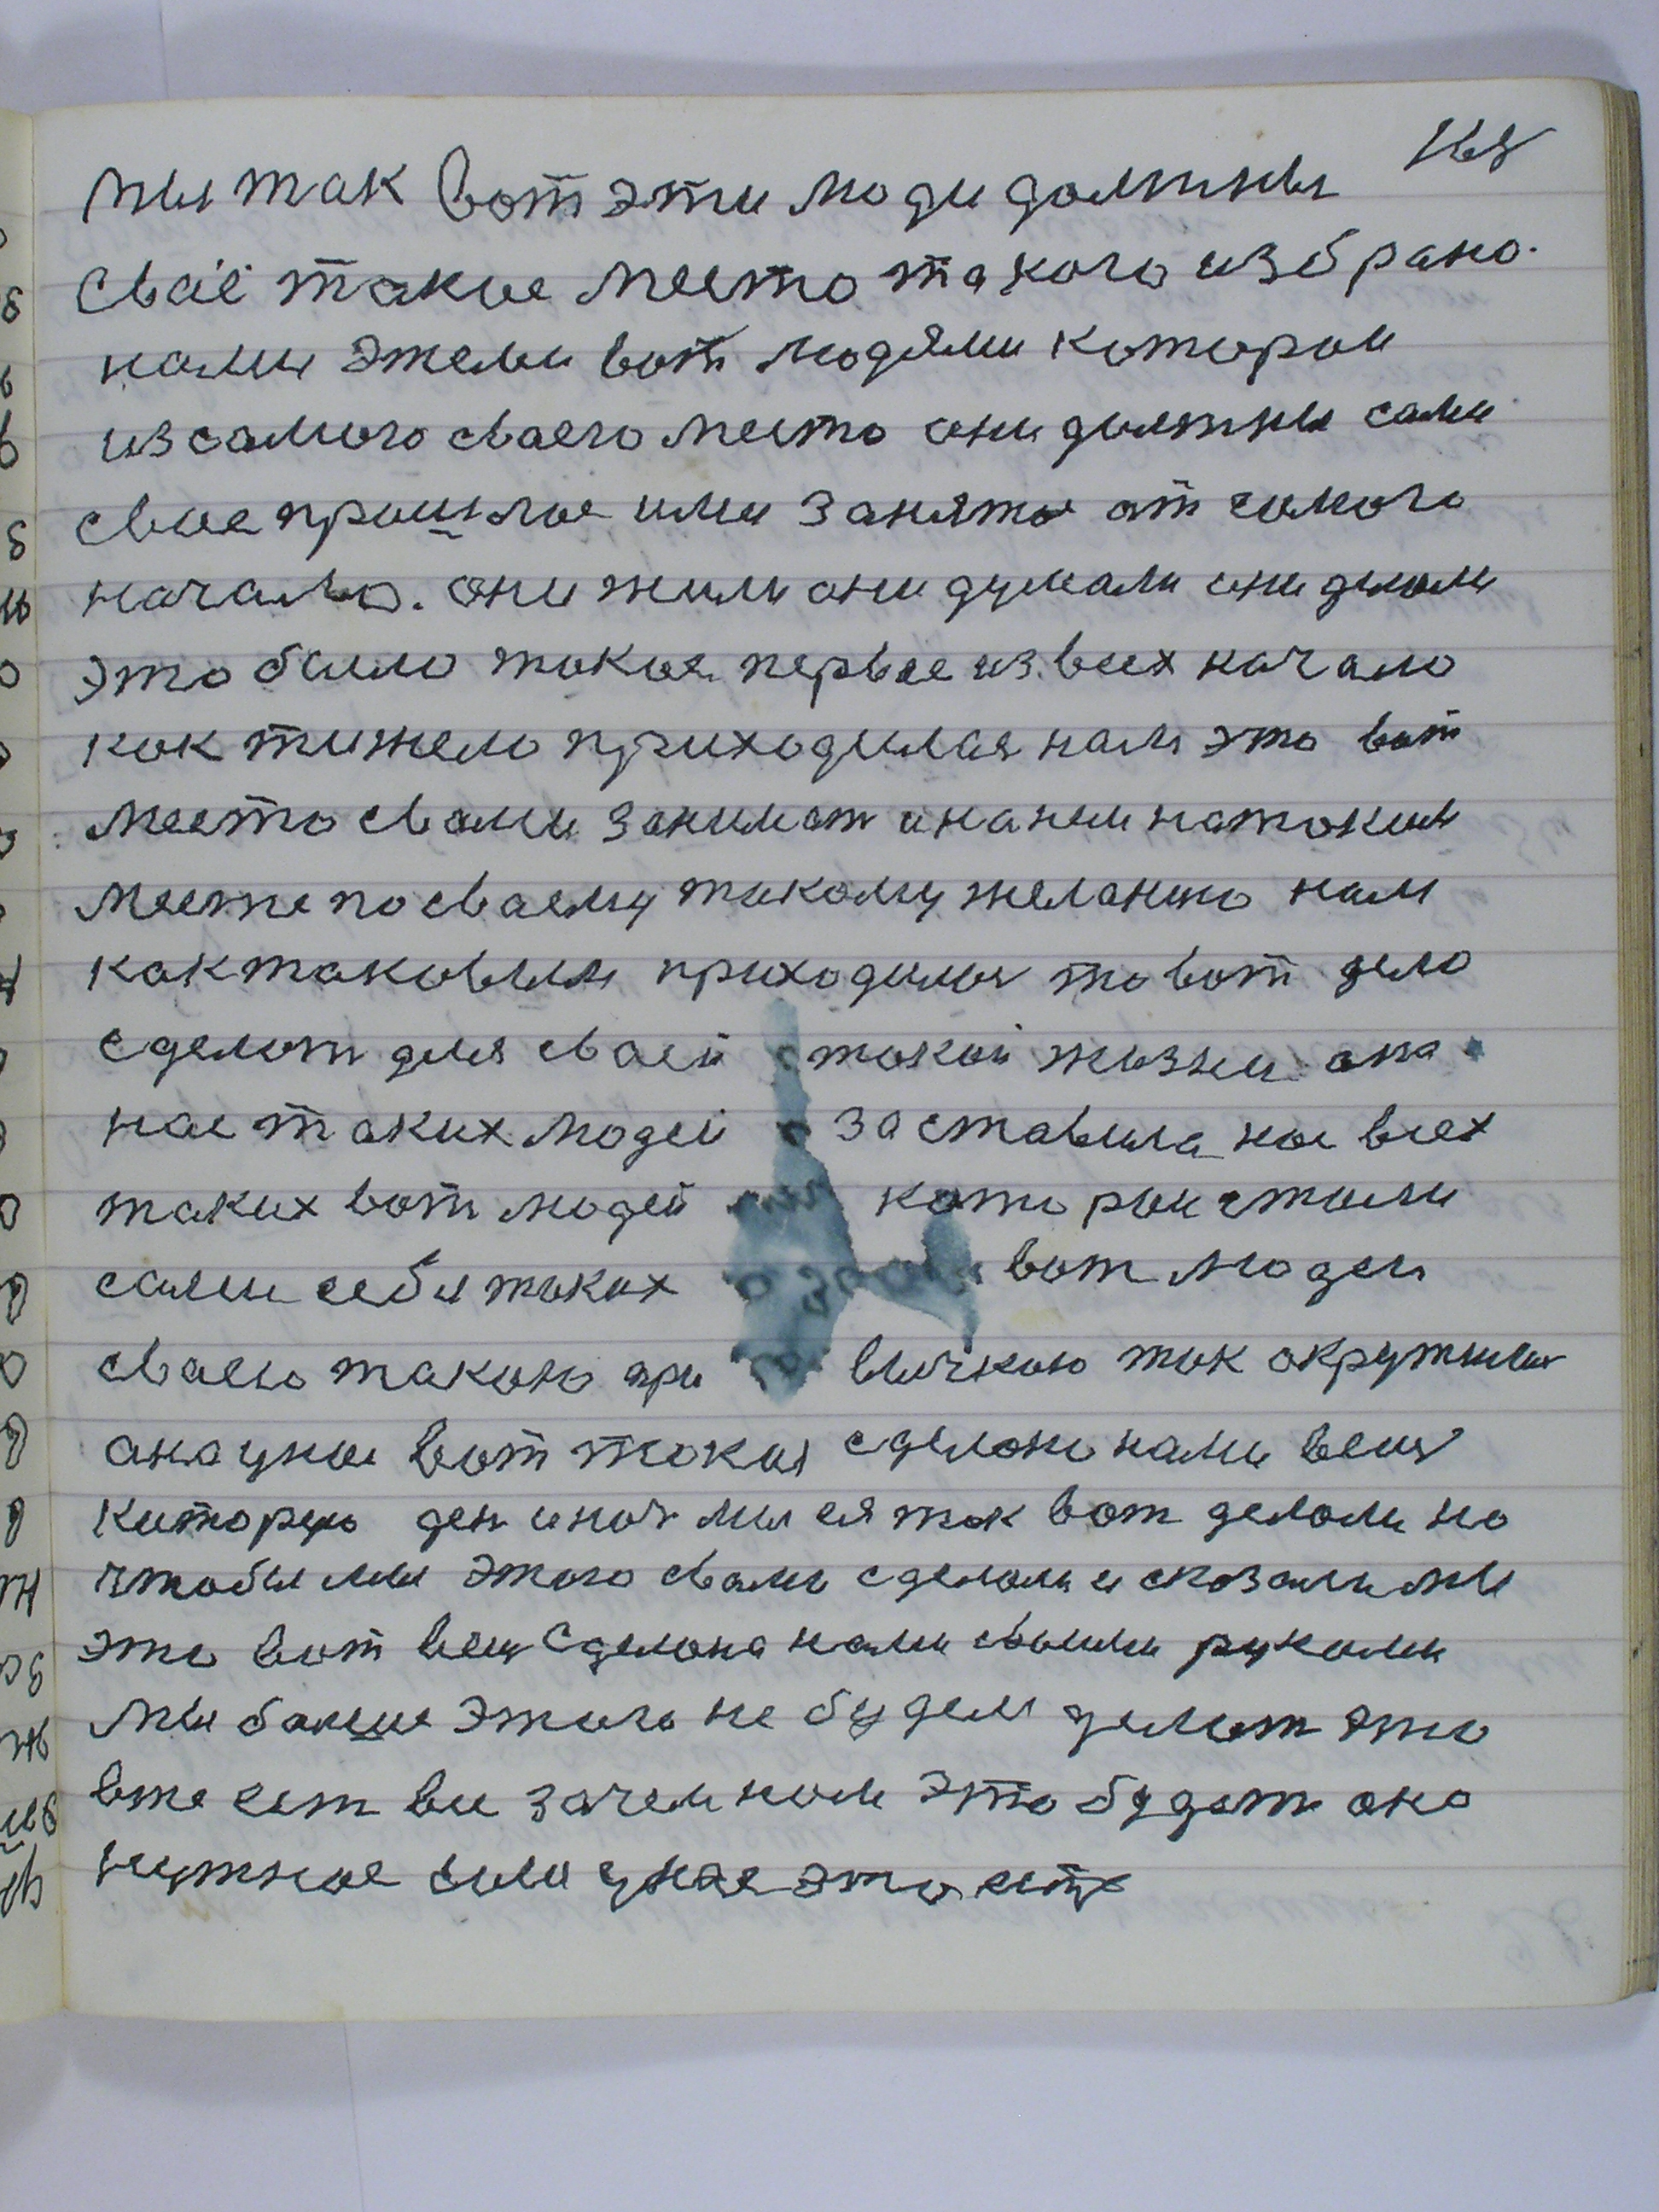 мы так вот эти люди должны
сваё такое место такого избрано.
нами этеми вот людями которои
из самого сваего место они должны сами
свое прошлое ими занято от самого
начало. они жили они думали они делали
это было такое первое из всех начало
как тижело приходилося нам это вот
место свами занимат и на ним на таким
месте по сваему такому желанию нам
как таковым приходилос то вот дело
сделат для сваей такой жизни она
нас таких людей заставила нас всех
таких вот людей которои стали
сами себя таких вот людей
сваею такою при вычкою так окружили
она у нас вот такая сделано нами вещ
которую ден и ноч мы ея так вот делали но
чтобы мы этого свами сделали и сказали мы
это вот вещ сделана нами своими руками
мы больше этого не будем делат это
вже ест все зачем нам это будет оно
нужное было у нас это ест